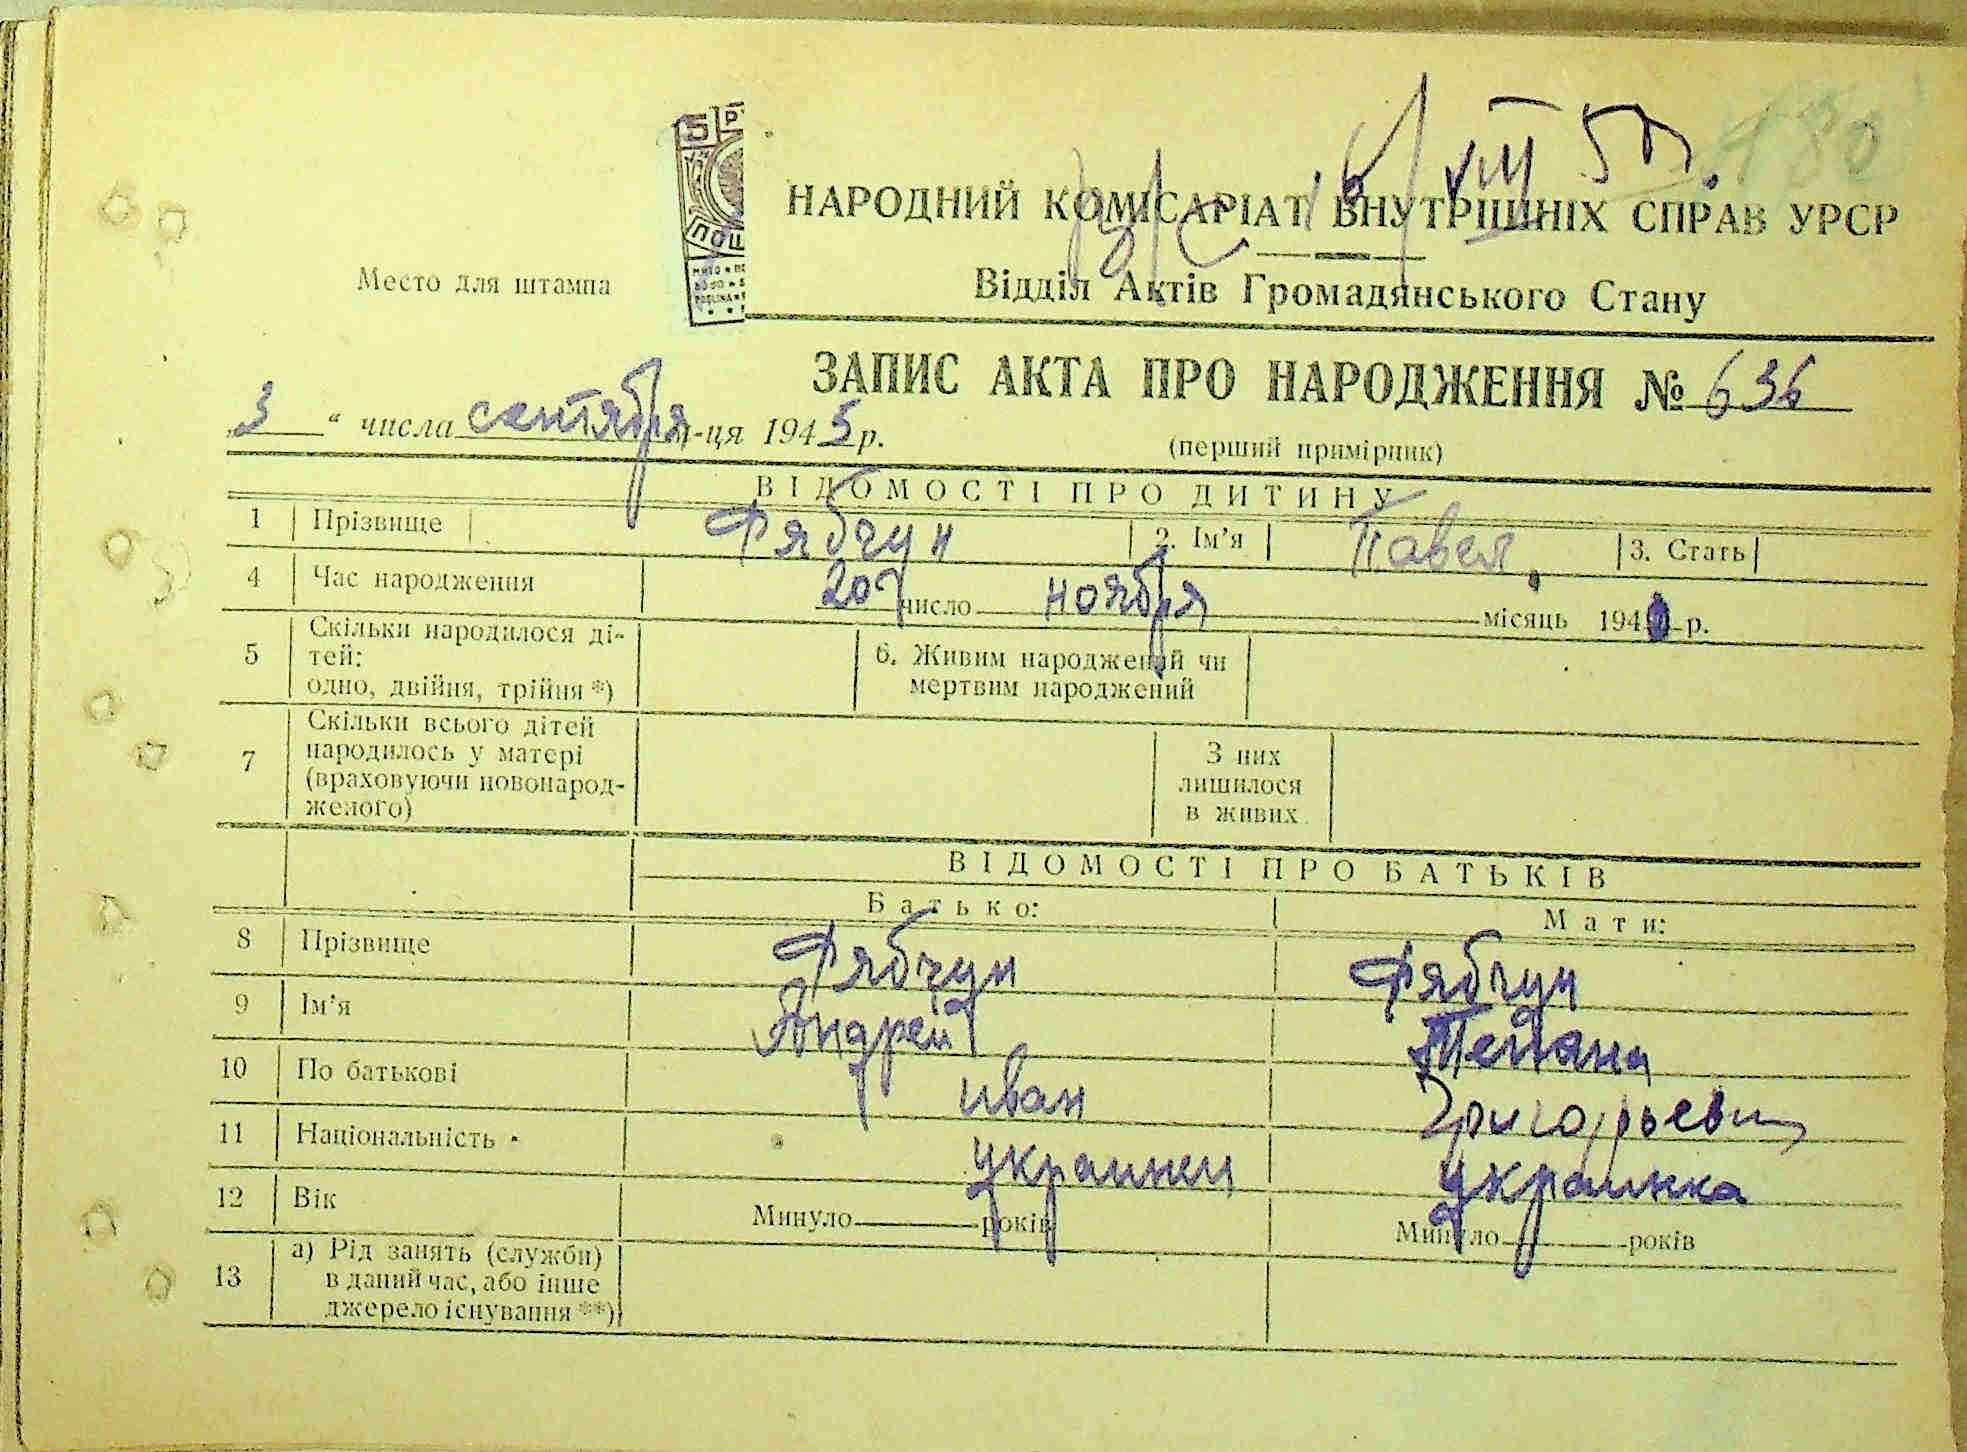 180
16/VIII 50
НАРОДНИЙ КОМІСАРІАТ ВНУТРІШНІХ СПРАВ УРСР
Место для штампа
Відділ Актів Громадянського Стану
ЗАПИС АКТА ПРО НАРОДЖЕННЯ № 636
3 “ числа сентября м-ця 1945 р.
(перший примірник)
ВІДОМОСТІ ПРО ДИТИНУ
1 Прізвище Рябчун 2. Ім’я Павел 3. Стать
4 Час народження 20 число ноября місяць 1940 р.
5 Скільки народилося ді-
тей:
одно, двійня, трійня *)
6. Живим народжений чи
мертвим народжений
7 Скільки всього дітей
народилось у матері
(враховуючи новонарод-
желого)
З них
лишилося
в живих
ВІДОМОСТІ ПРО БАТЬКІВ
Батько: Мати:
8 Прізвище Рябчун Рябчун
9 Ім’я Андрей
10 По батькові иван Григорьевн
11 Національність украинец украинка
12 Вік Минуло років Минуло років
13 а) Рід занять (служби)
в даний час, або інше
джерело існування **)